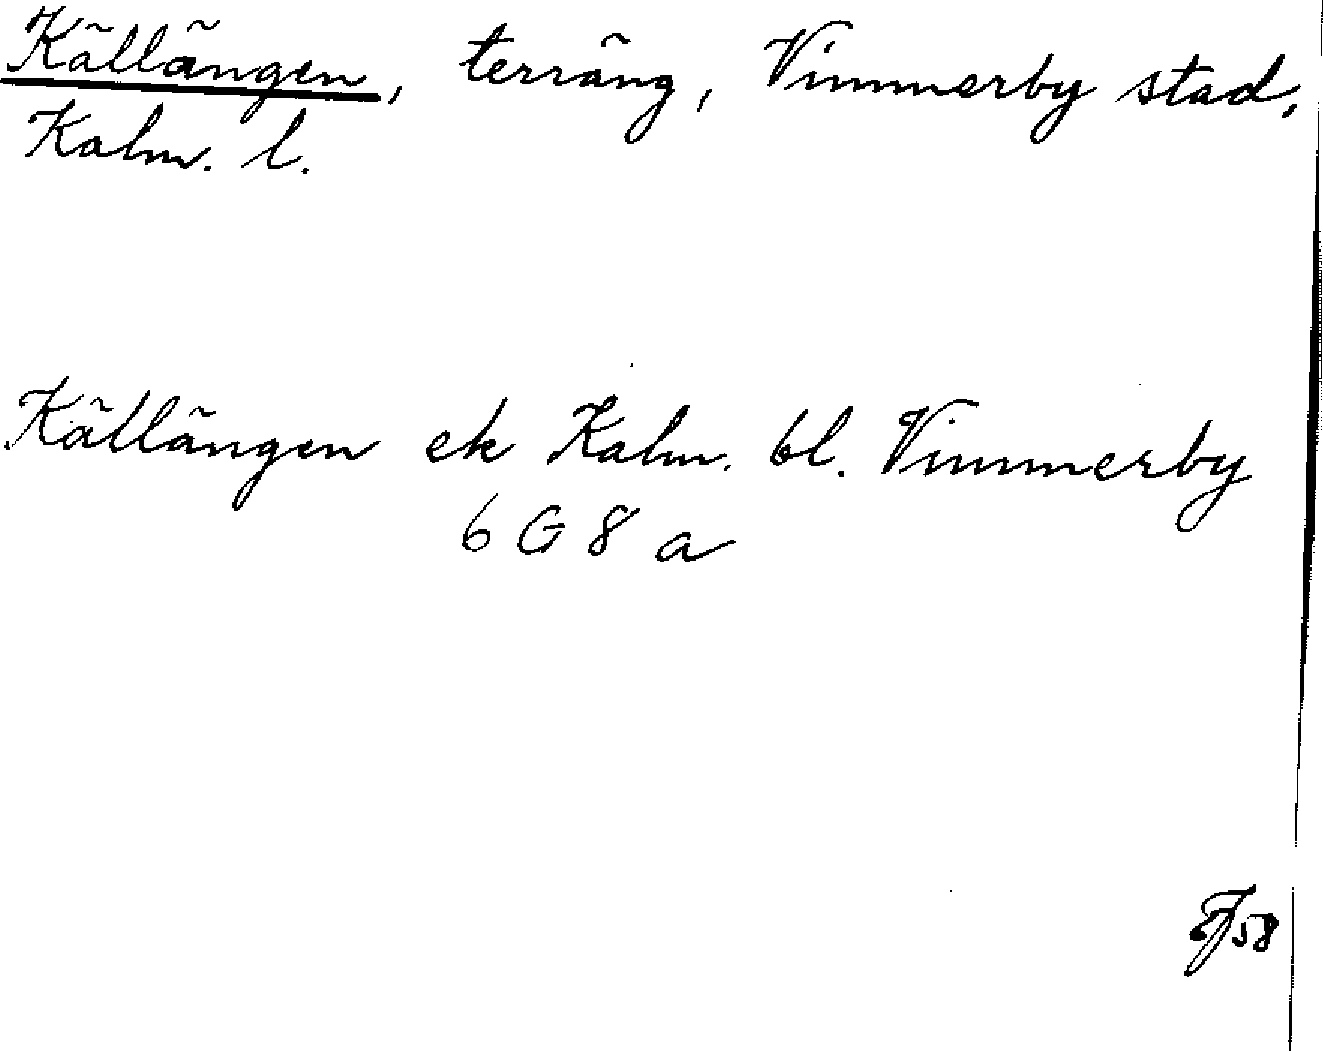 Källängen, terräng, Vimmerby stad,
Kalm. l.
Källängen ek Kalm. bl. Vimmerby
6 G 8 a
58